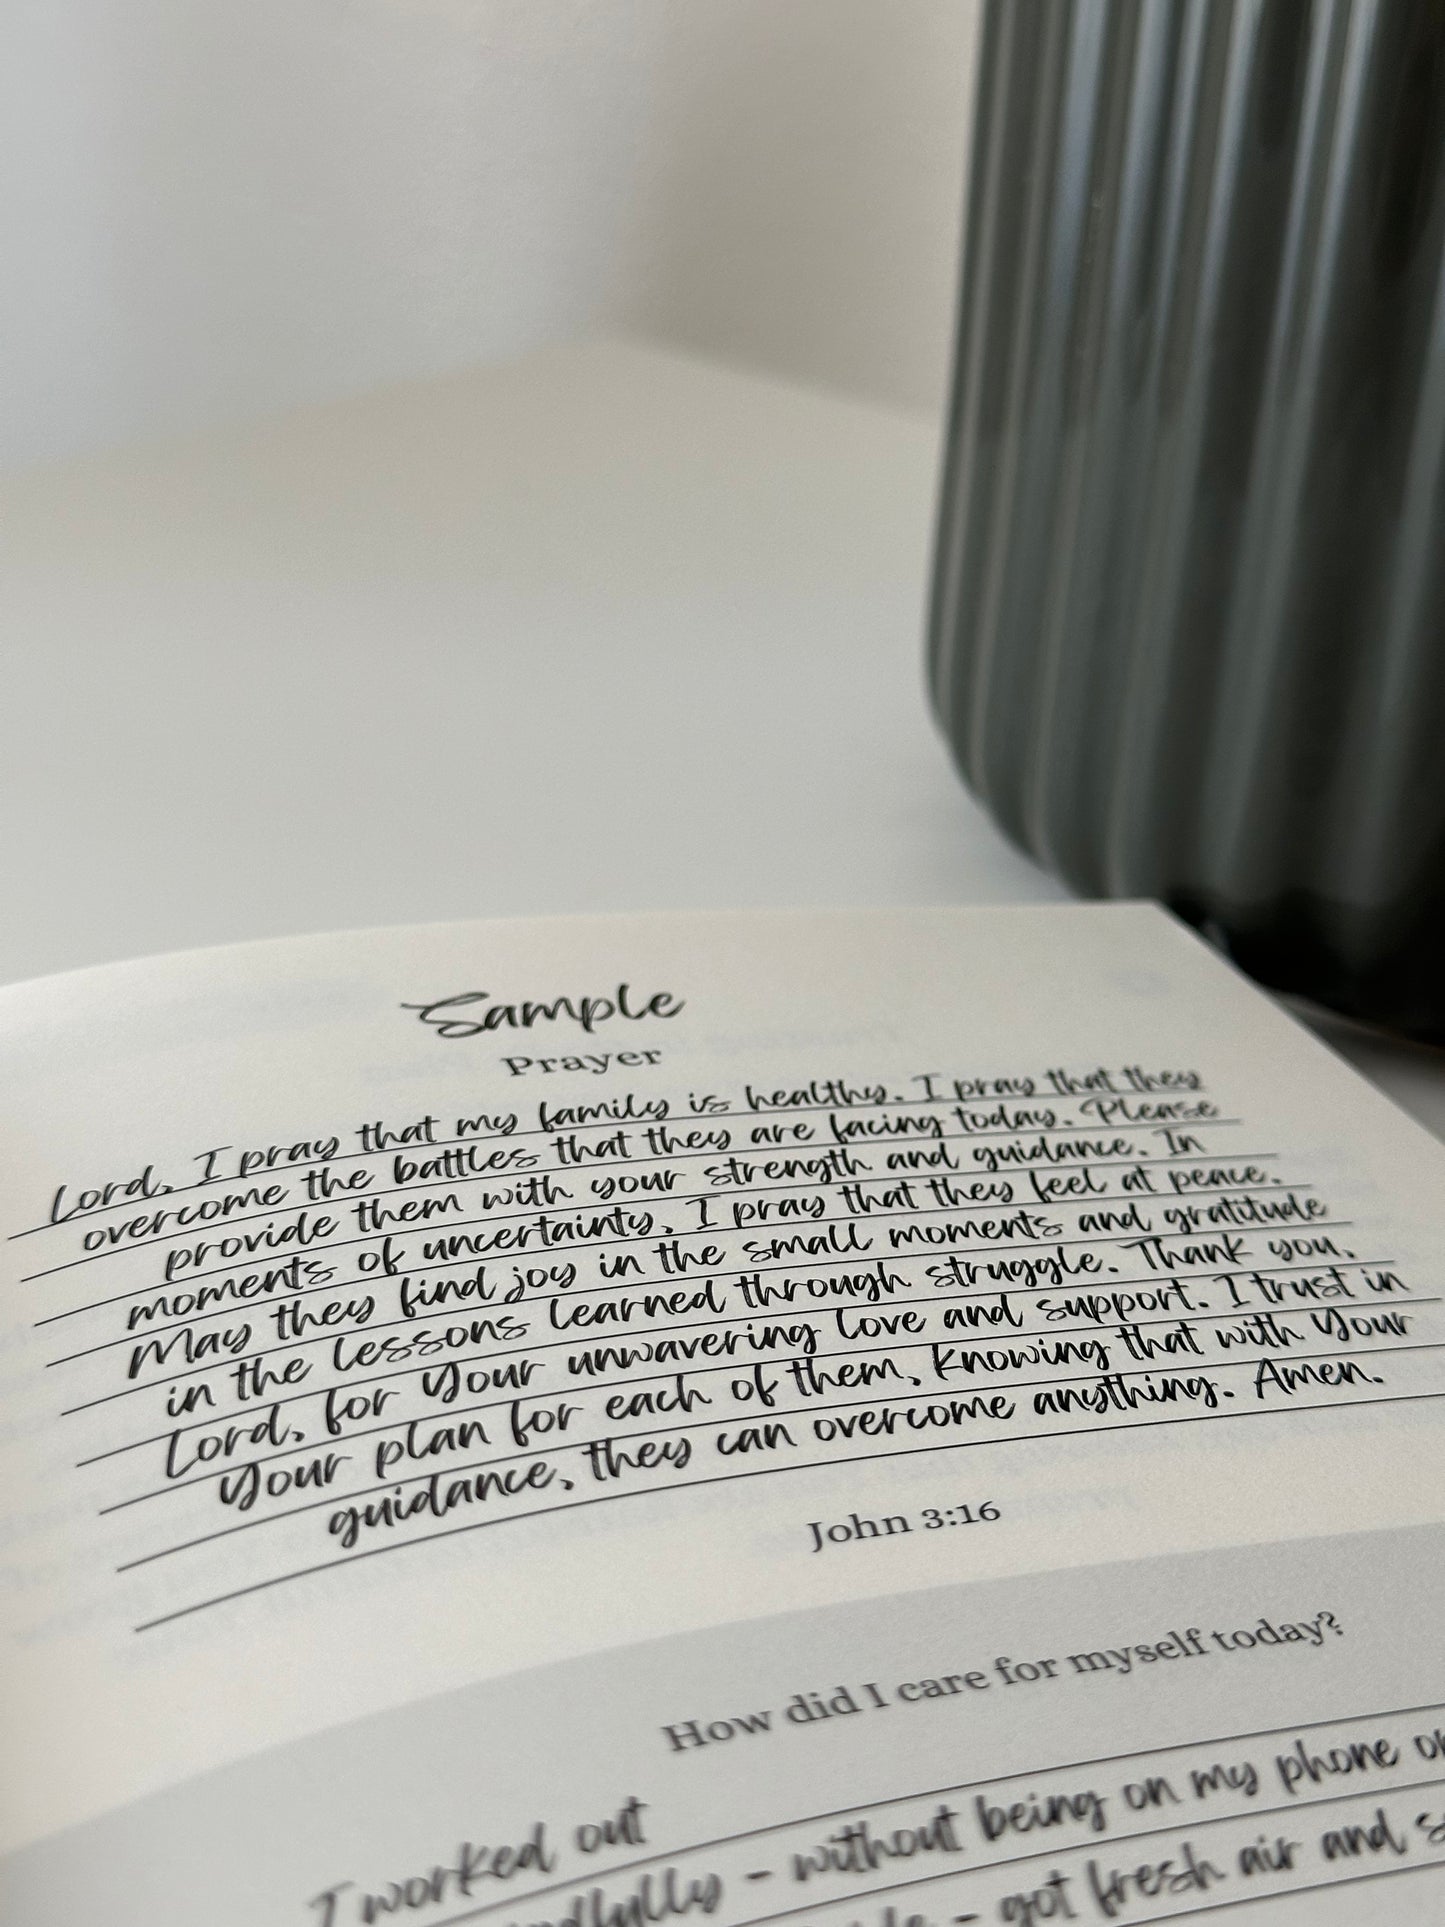 Sample
Prayer
Lord, I pray that my family is healthy. I pray that they
overcome the battles that they are facing today. Please
provide them with your strength and guidance. In
moments of uncertainty, I pray that they feel at peace.
May they find joy in the small moments and gratitude
in the lessons learned through struggle. Thank you,
Lord, for your unwavering love and support. I trust in
Your plan for each of them, knowing that with Your
guidance, they can overcome anything. Amen.
John 3:16
How did I care for myself today?
I worked out
- without being on my phone
- got fresh air and